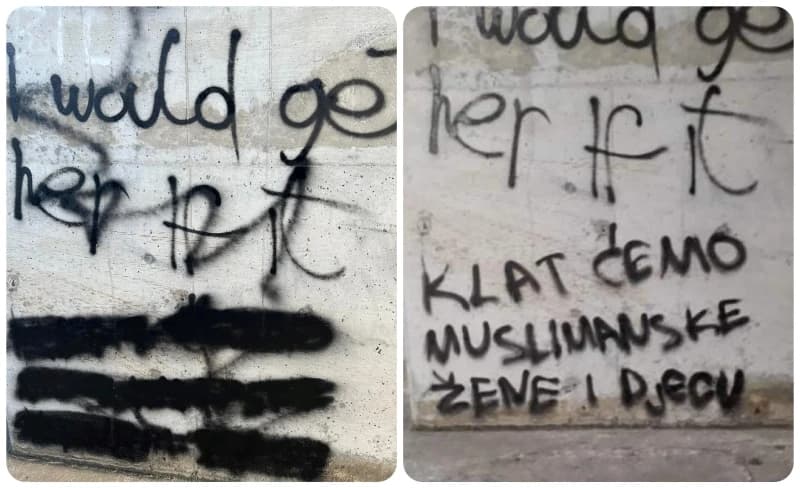 I would ge
her If it
I would ge
her If it
KLAT ĆEMO
MUSLIMANSKE
ŽENE I DJeCU